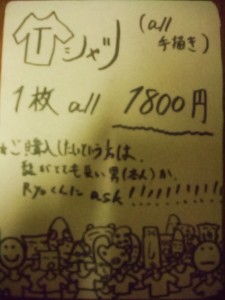 Tシャツ
(all
手描き)
1枚 all 1800円
*ご購入したいっていう方は、
髭がとても長い男(本人)か、
Ryoくんにask!!!!!!!!!!